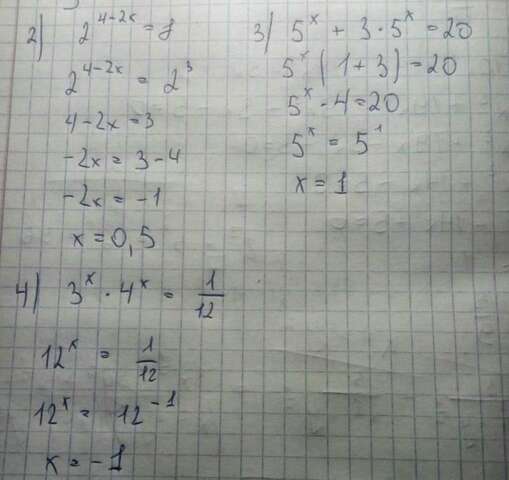 2) 2^{4-2x} = 8
2^{4-2x} = 2^3
4-2x=3
-2x = 3-4
-2x = -1
x = 0,5
3) 5^x + 3·5^x = 20
5^x (1+3) = 20
5^x · 4 = 20
5^x = 5^1
x = 1
4) 3^x · 4^x = 1/12
12^x = 1/12
12^x = 12^{-1}
x = -1